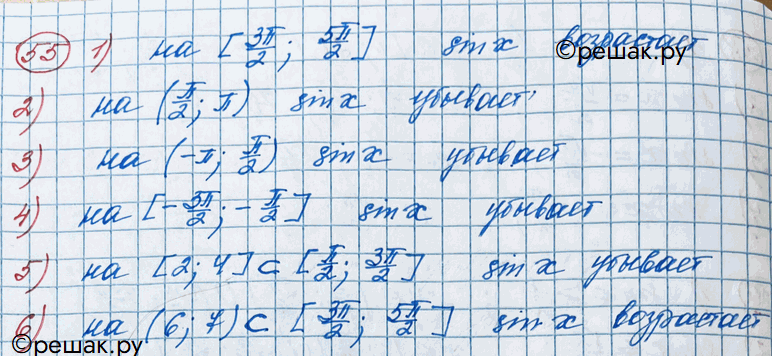 55 1) на [3π/2; 5π/2] sin x возрастает
©решак.ру
2) на (π/2; π) sin x убывает
3) на (-π; π/2) sin x убывает
4) на [-3π/2; -π/2] sin x убывает
5) на [2; 4] ⊂ [π/2; 3π/2] sin x убывает
6) на (6; 7) ⊂ [3π/2; 5π/2] sin x возрастает
©решак.ру